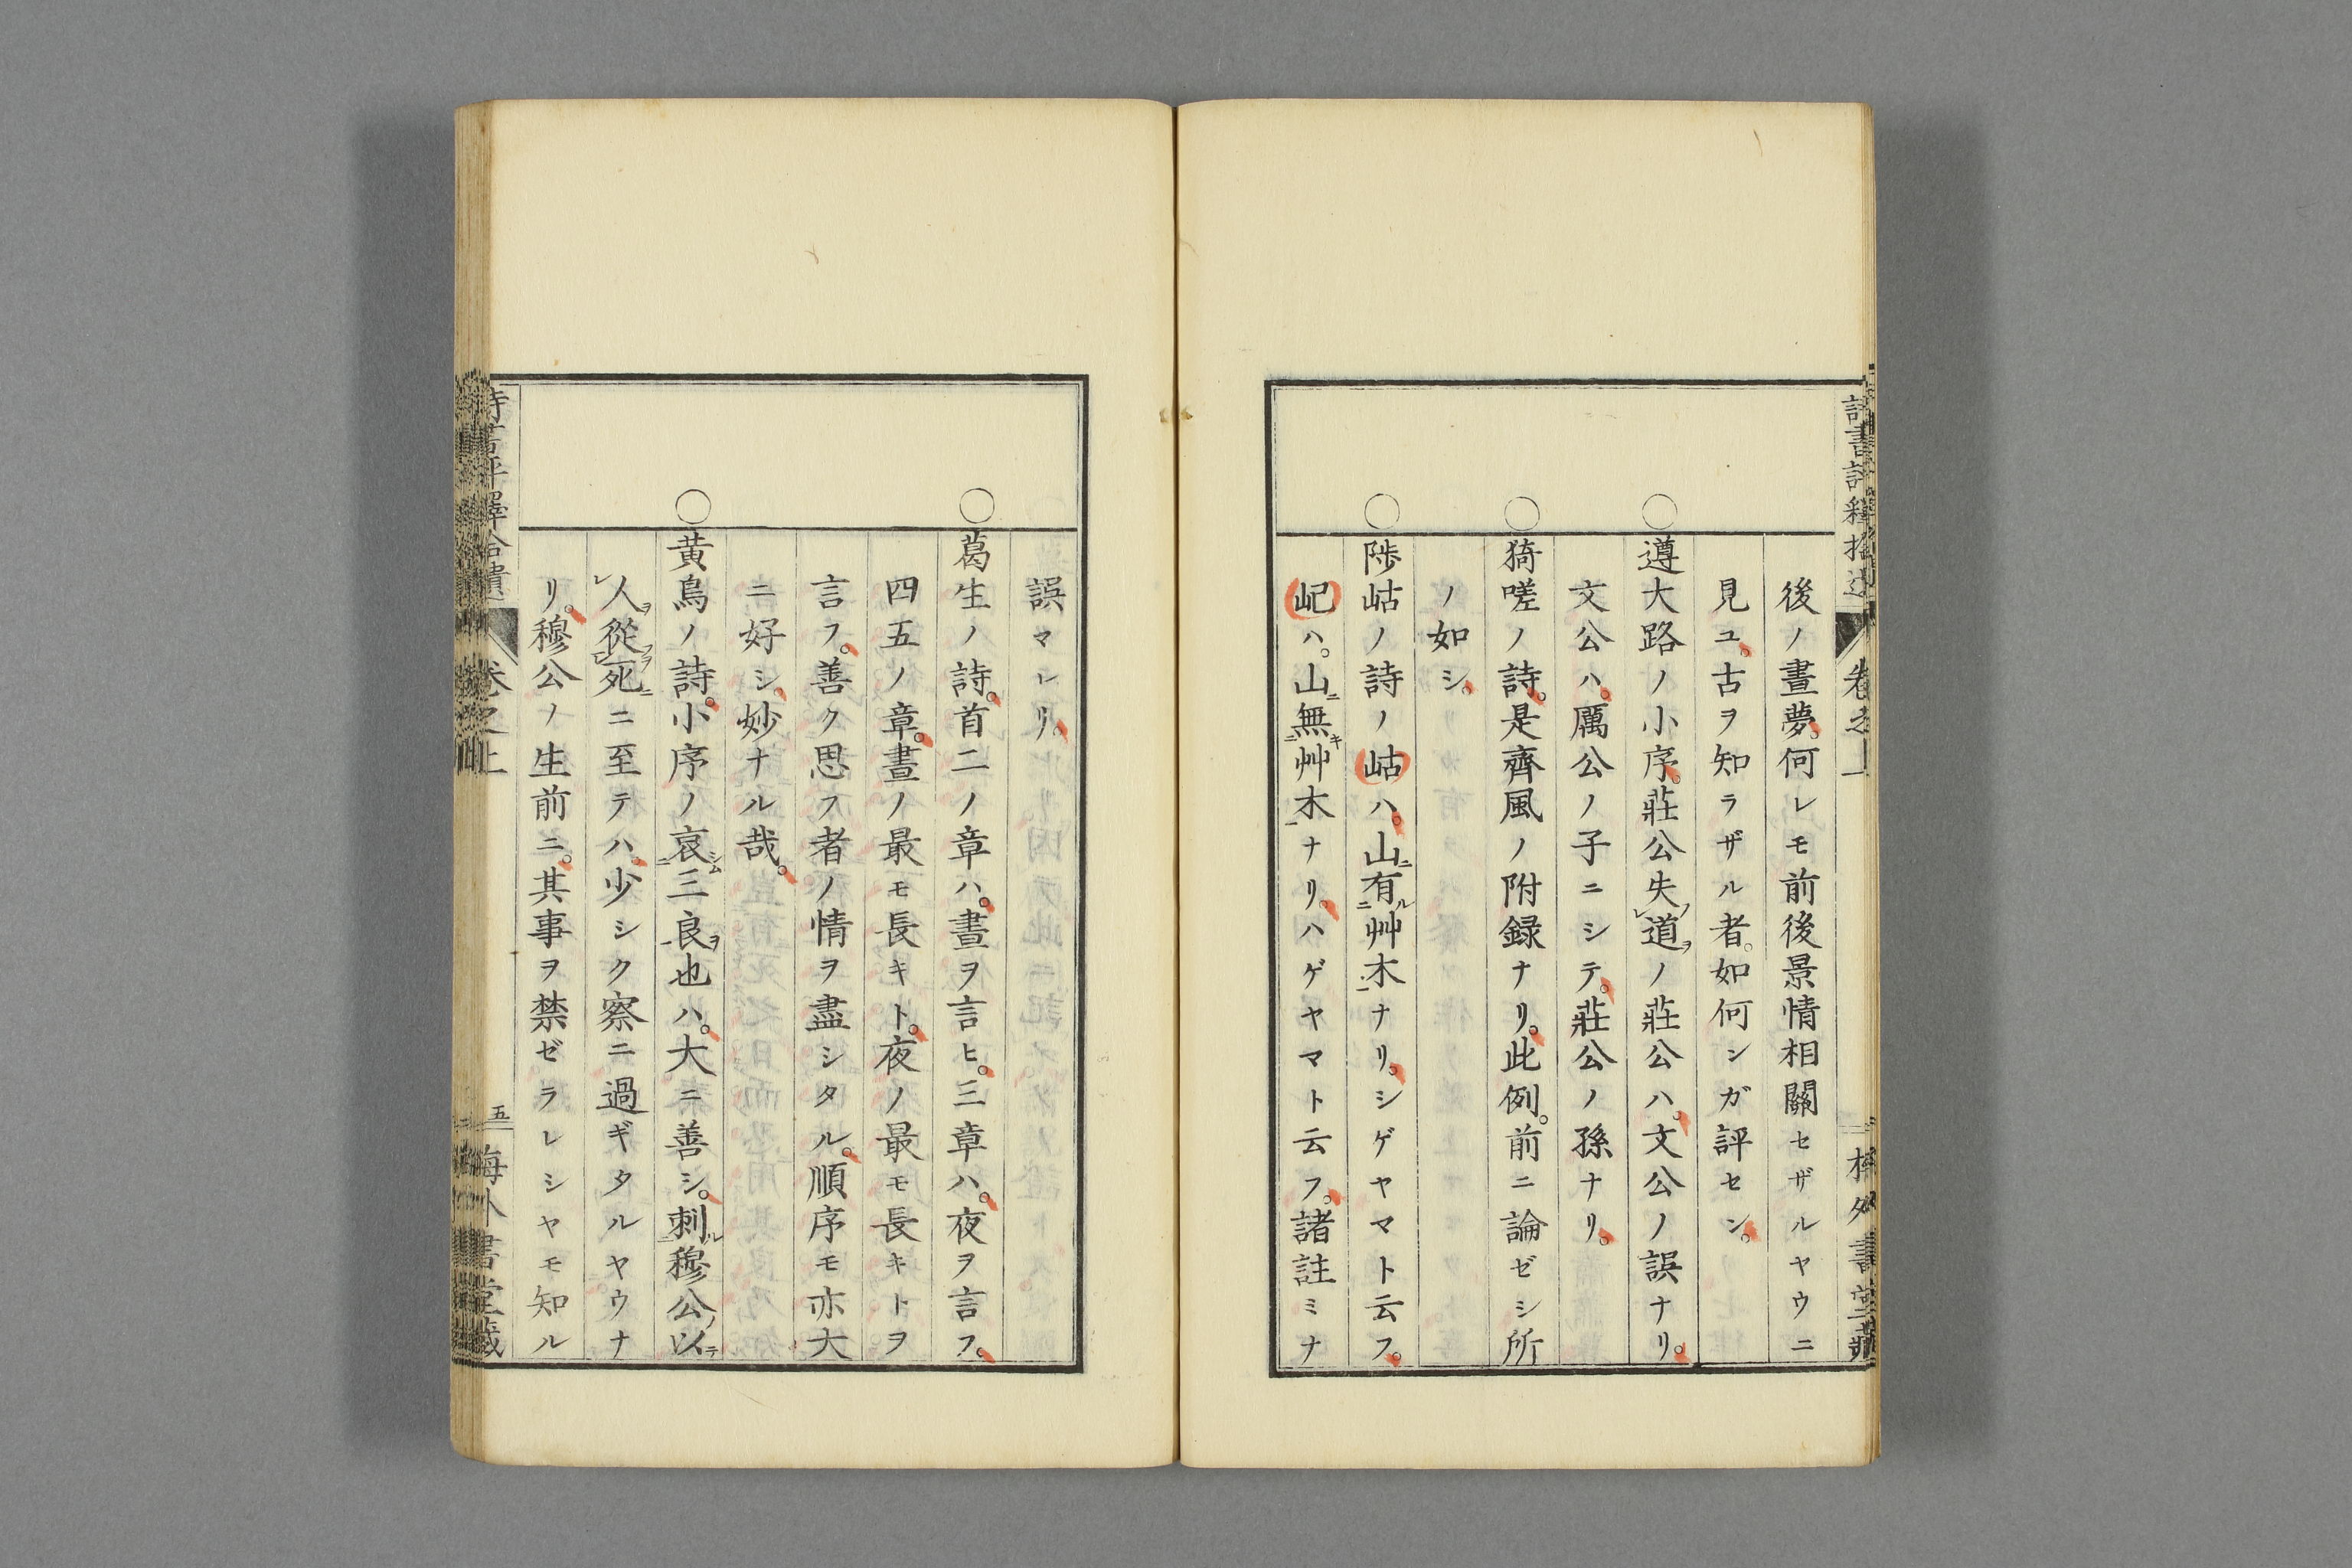 後ノ晝夢。何レモ前後景情相關セザルヤウニ
見ユ。古ヲ知ラザル者。如何ンガ評セン。
○遵大路ノ小序。莊公失道ノ莊公ハ。文公ノ誤ナリ。
文公ハ。厲公ノ子ニシテ。莊公ノ孫ナリ。
○猗嗟ノ詩。是齊風ノ附録ナリ。此例。前ニ論ゼシ所
ノ如シ。
○陟岵ノ詩ノ岵ハ。山有艸木ナリ。シゲヤマト云フ。
屺ハ。山無艸木ナリ。ハゲヤマト云フ。諸註ミナ
誤マレリ。
○葛生ノ詩。首二ノ章ハ。晝ヲ言ヒ。三章ハ。夜ヲ言フ。
四五ノ章。晝ノ最モ長キト。夜ノ最モ長キトヲ
言フ。善ク思フ者ノ情ヲ盡シタル。順序モ亦大
ニ好シ。妙ナル哉。
○黄鳥ノ詩。小序ノ哀三良也ハ。大ニ善シ。刺穆公以
人從死ニ至テハ。少シク察ニ過ギタルヤウナ
リ。穆公ノ生前ニ。其事ヲ禁ゼラレシヤモ知ル
卷之上
五
海外書堂藏